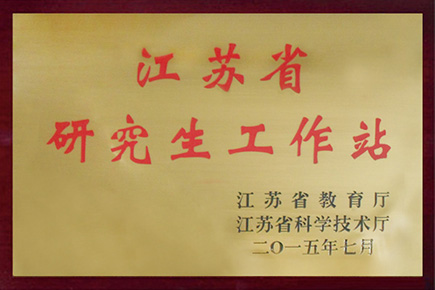 江苏省
研究生工作站
江苏省教育厅
江苏省科学技术厅
二〇一五年七月